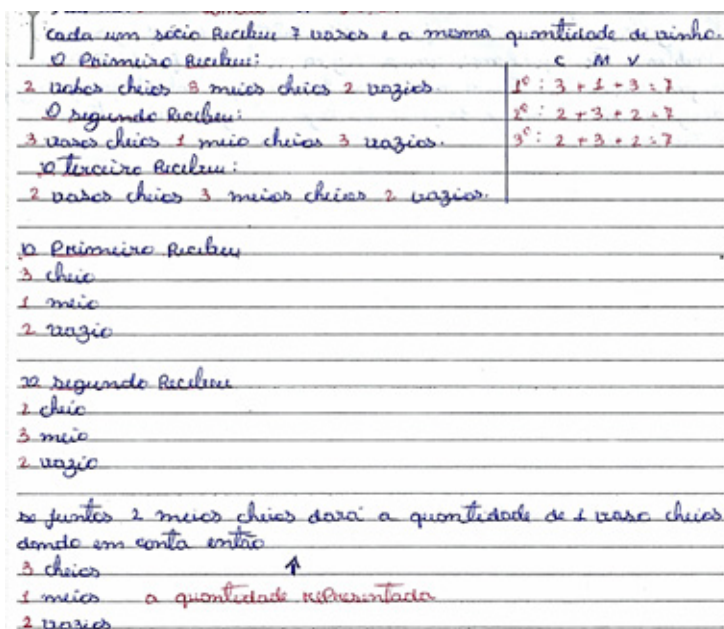 cada um sócio Recebeu 7 vasos e a mesma quantidade de vinho.
O Primeiro Recebeu:
2 vasos cheios 3 meios cheios 2 vazios
O segundo Recebeu:
3 vasos cheios 1 meio cheios 3 vazios.
O terceiro Recebeu:
2 vasos cheios 3 meios cheios 2 vazios.
C M V
1º: 3 + 1 + 3 = 7
2º: 2 + 3 + 2 = 7
3º: 2 + 3 + 2 = 7
O Primeiro Recebeu
3 cheio
1 meio
2 vazio
O segundo Recebeu
2 cheio
3 meio
2 vazio
se juntos 2 meios cheios dará a quantidade de 1 vaso cheios
dando em conta então
3 cheios
1 meios a quantidade representada
2 vazios